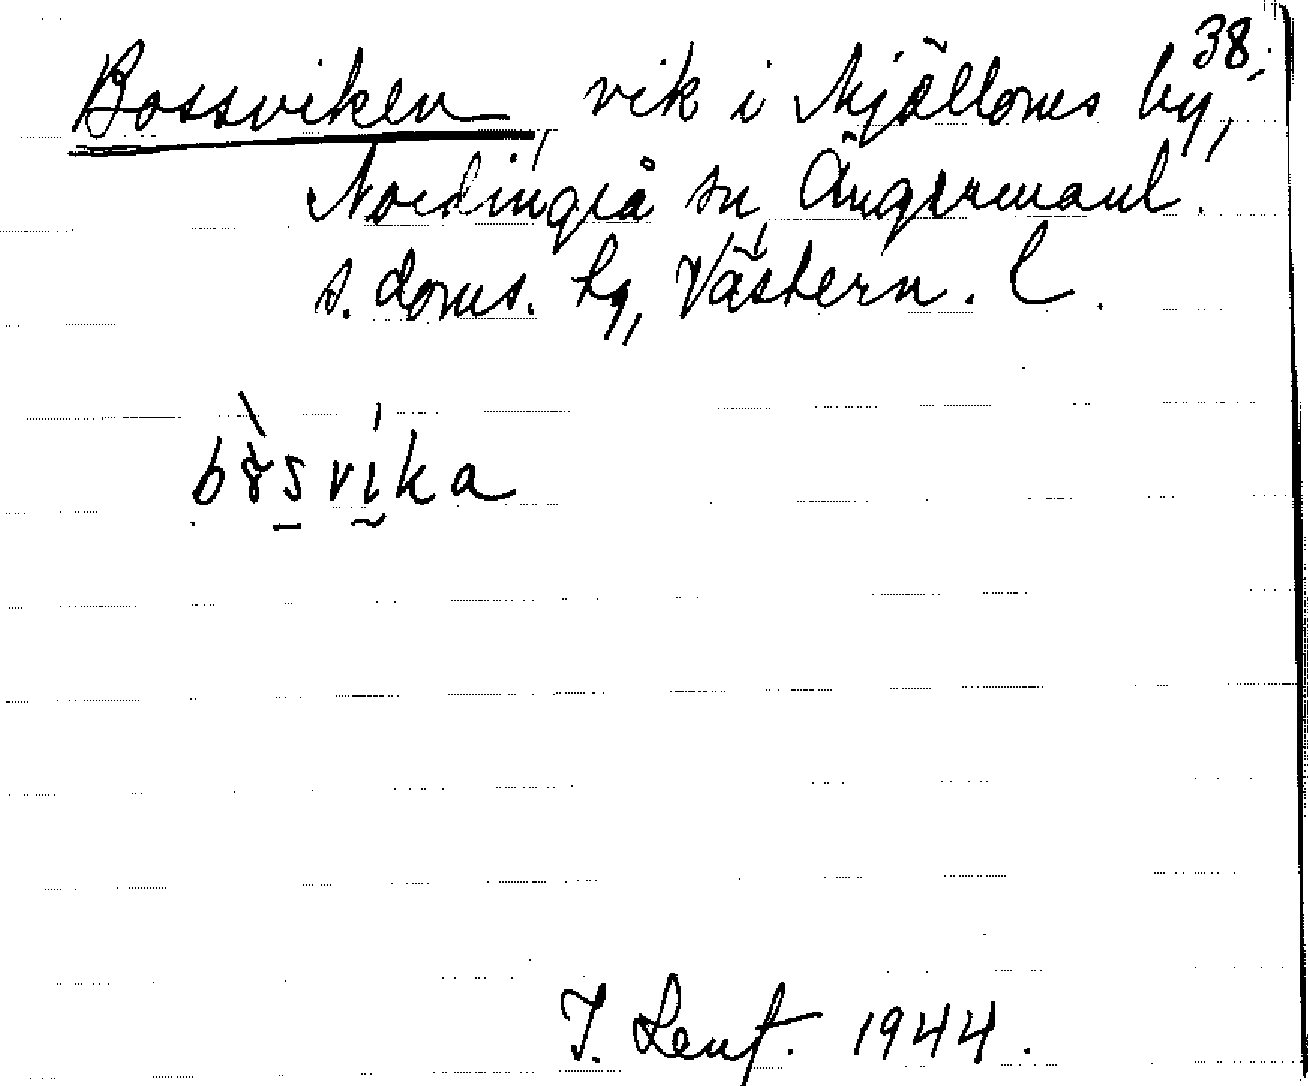 38.
Bossviken, vik i Mjälloms by,
Nordingrå sn, Ångermanl.
s. doms. hg, Västern. l.
bòsvíka
J. Lenf. 1944.